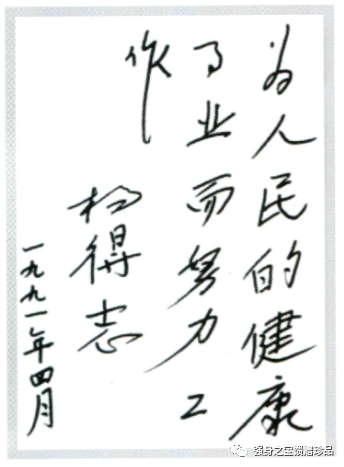 为人民的健康
事业而努力工
作
杨得志
一九九一年四月
强身之宝珍品